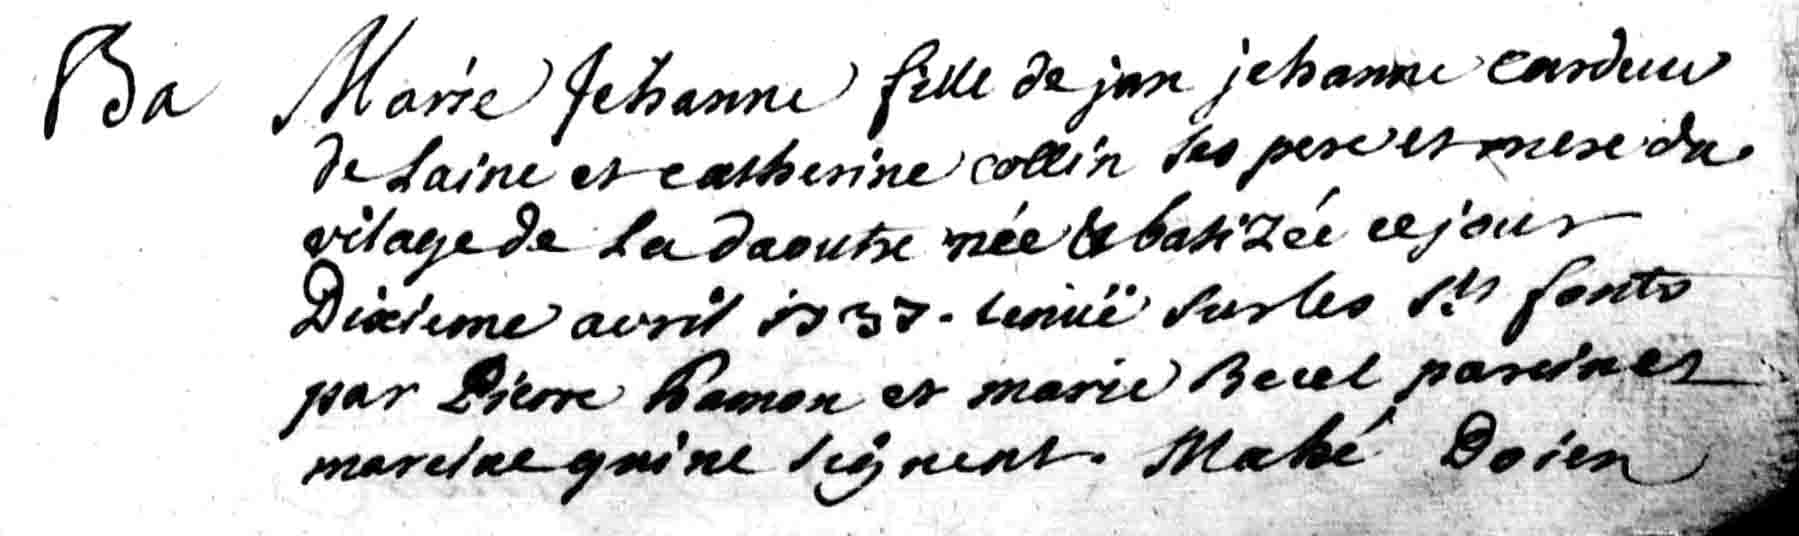 Ba Marie Jehanne fille de jan jehanne cardeur
de Laine et catherine collin ses pere et mere du
vilage de La daoutre née & batizée ce jour
Dixieme avril 1737. tenüe sur les sts fonts
par Pierre hamon et marie Becel parein et
mareine qui ne signent. Mahé Doien